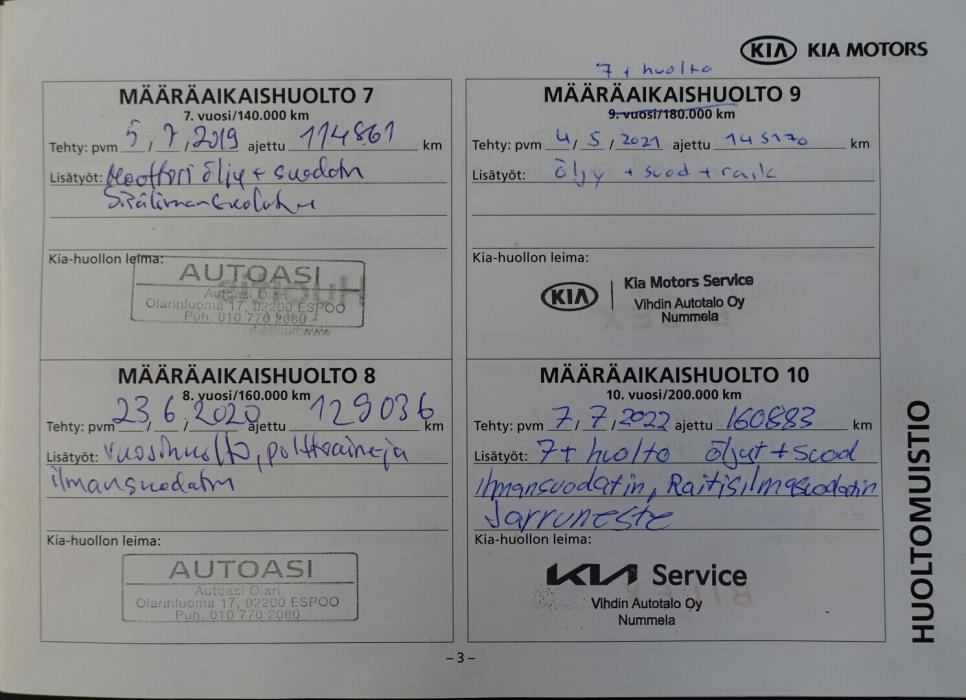 KIA KIA MOTORS
MÄÄRÄAIKAISHUOLTO 7
7. vuosi/140.000 km
Tehty: pvm 5 / 7 / 2019 ajettu 114861 km
Lisätyöt: Moottori öljy + suodatin
Sisäilmansuodatin
Kia-huollon leima:
AUTOASI
Autoasi Olari
Olarinluoma 17, 02200 ESPOO
Puh. 010 770 2080
MÄÄRÄAIKAISHUOLTO 8
8. vuosi/160.000 km
Tehty: pvm 23 / 6 / 2020 ajettu 129036 km
Lisätyöt: vuosihuolto, polttoaine ja
ilmansuodatin
Kia-huollon leima:
AUTOASI
Autoasi Olari
Olarinluoma 17, 02200 ESPOO
Puh. 010 770 2080
7 + huolto
MÄÄRÄAIKAISHUOLTO 9
9. vuosi/180.000 km
Tehty: pvm 4 / 5 / 2021 ajettu 145170 km
Lisätyöt: öljy + suod + raik
Kia-huollon leima:
KIA Kia Motors Service
Vihdin Autotalo Oy
Nummela
MÄÄRÄAIKAISHUOLTO 10
10. vuosi/200.000 km
Tehty: pvm 7 / 7 / 2022 ajettu 160883 km
Lisätyöt: 7+ huolto öljyt + suod
Ilmansuodatin, Raitisilmasuodatin
Jarruneste
Kia-huollon leima:
KIA Service
Vihdin Autotalo Oy
Nummela
HUOLTOMUISTIO
– 3 –